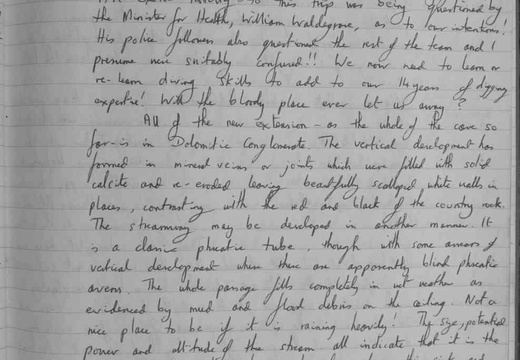 to this trip was being questioned by
the Minister for Health, William Waldegrave, as to our intentions!
His police followers also questioned the rest of the team and I
presume were suitably confused!! We now need to learn or
re-learn diving skills to add to our 14 years of digging
expertise! Will the bloody place ever let us away?
All of the new extension - as the whole of the cave so
far - is in Dolomitic Conglomerate. The vertical development has
formed in mineral veins or joints which were filled with solid
calcite and re-eroded leaving beautifully scalloped, white walls in
places, contrasting with the red and black of the country rock.
The streamway may be developed in another manner. It
is a classic phreatic tube, though with some areas of
vertical development where there are apparently blind phreatic
avens. The whole passage fills completely in wet weather as
evidenced by mud and flood debris on the ceiling. Not a
nice place to be if it is raining heavily! The size, potential
power and altitude of the stream all indicate that it is the